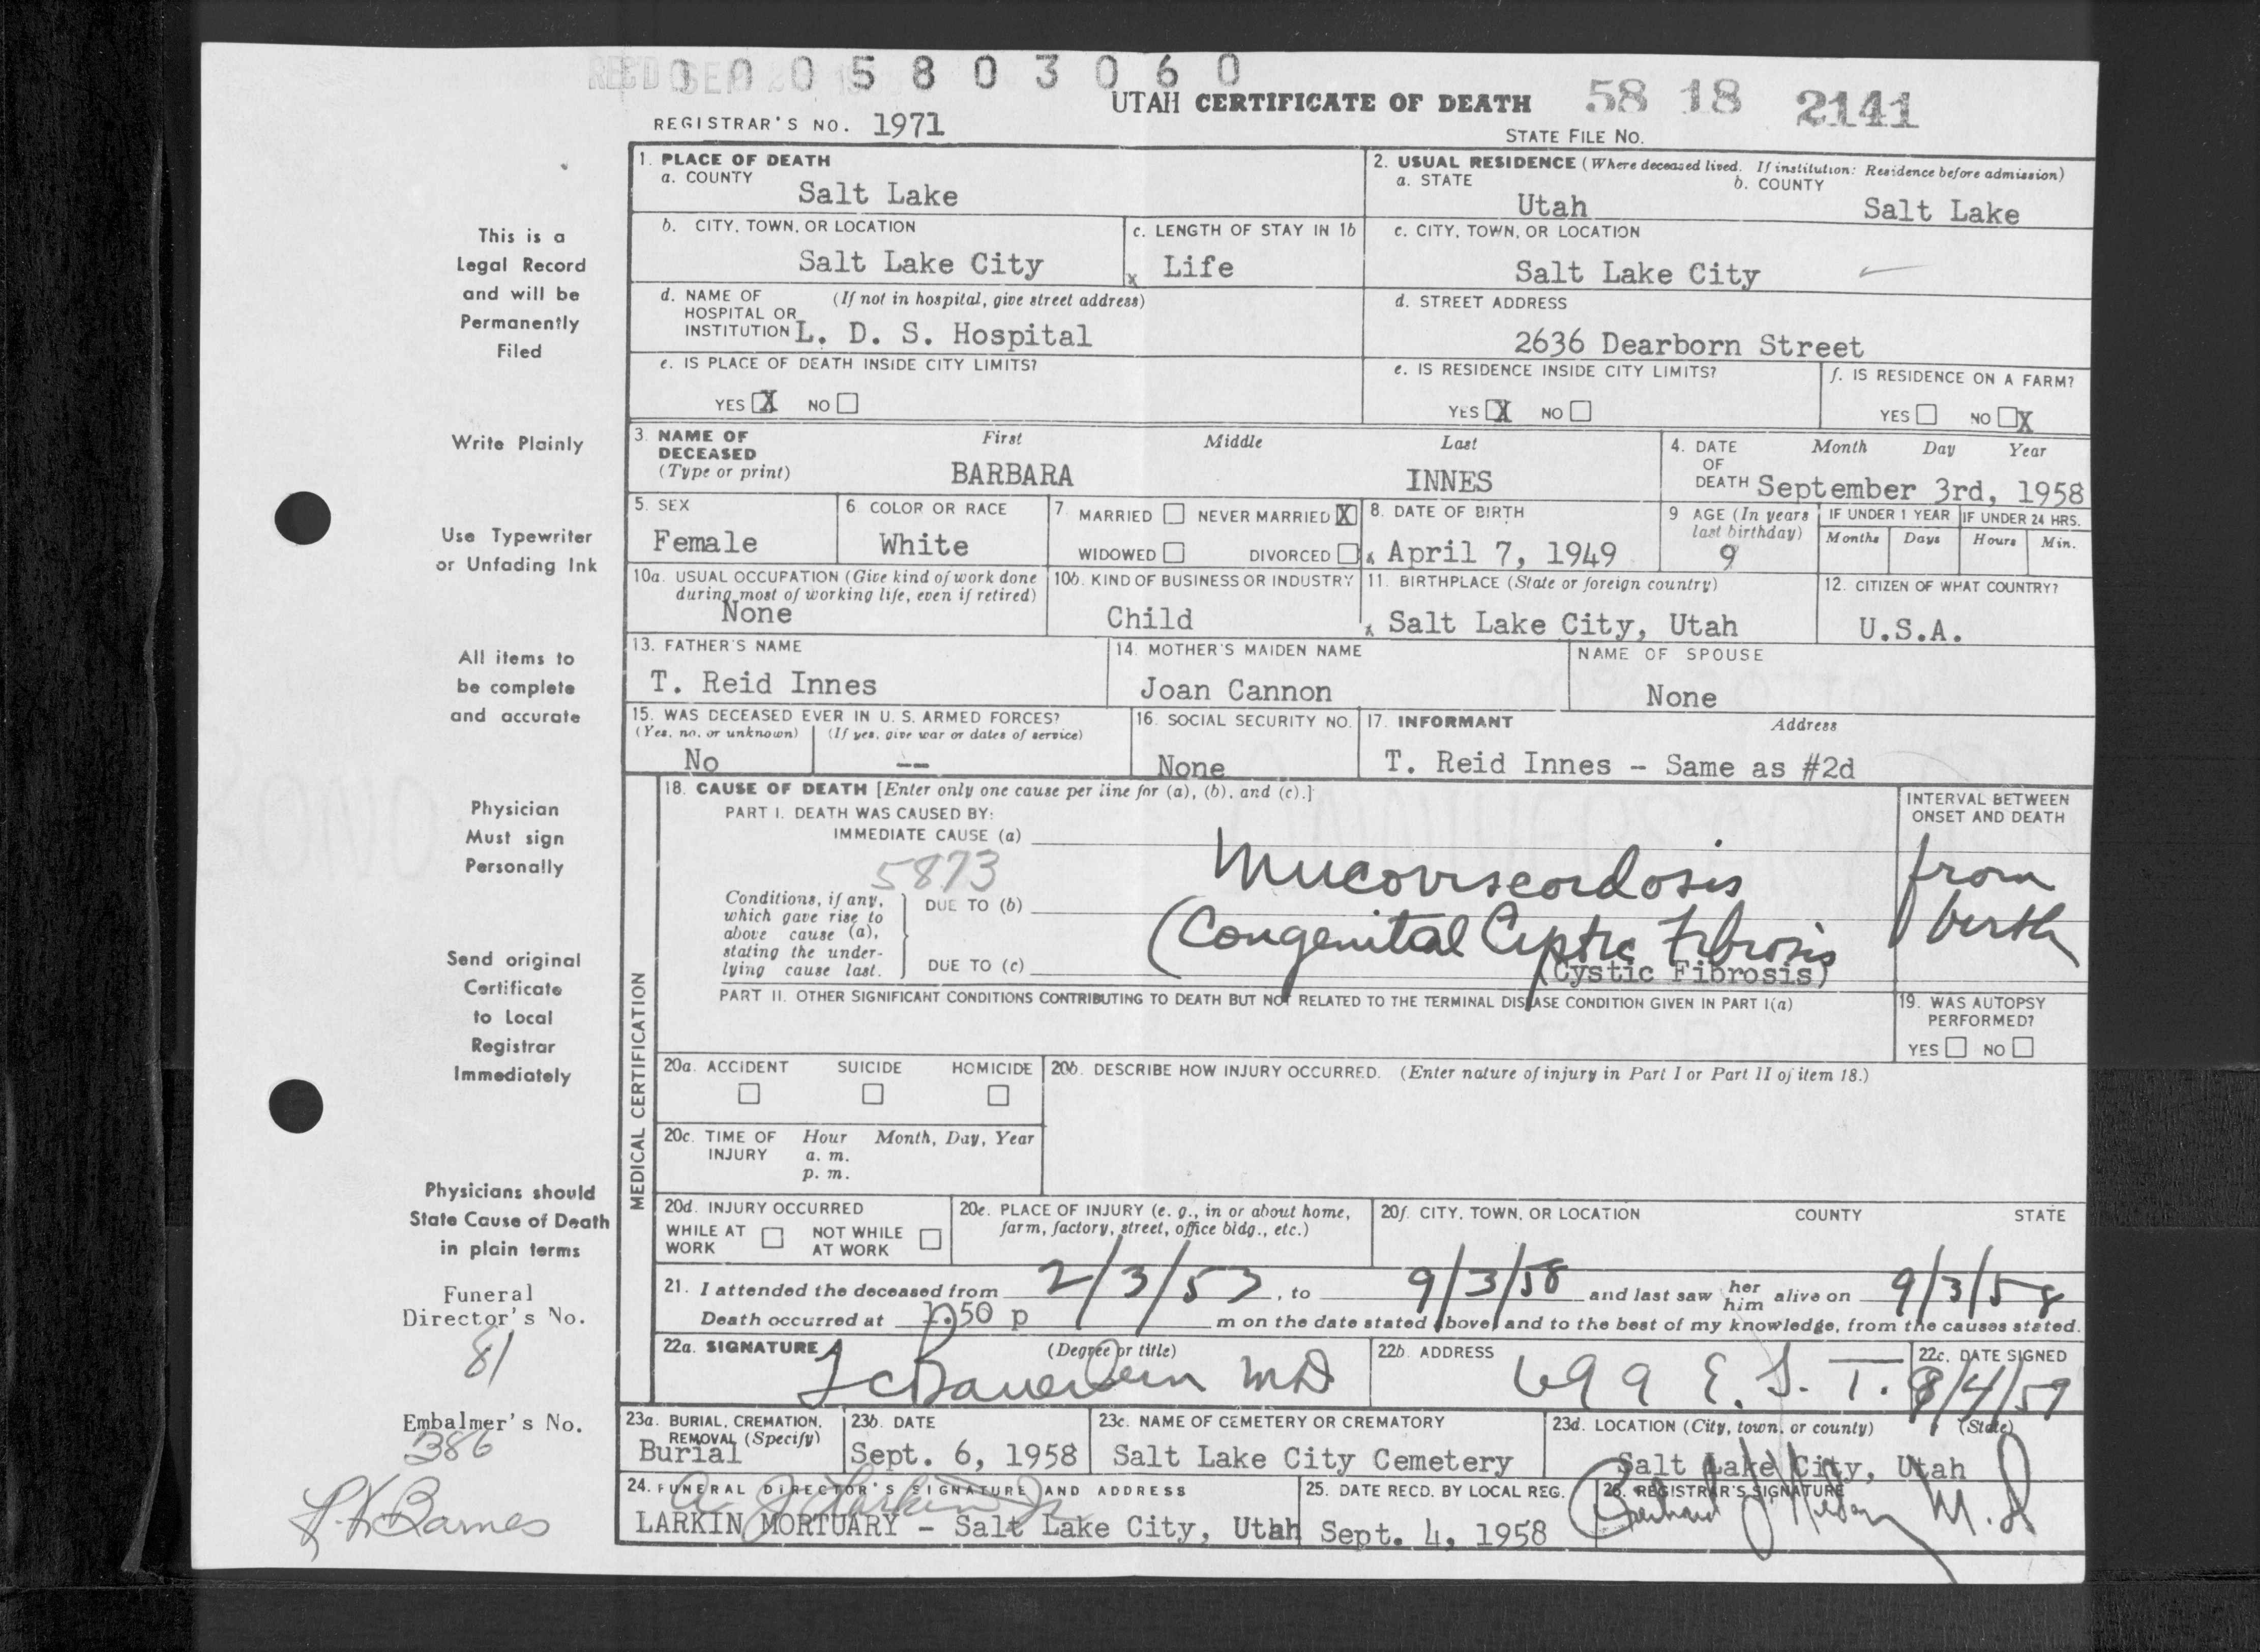 0 0 0 5 8 0 3 0 6 0
UTAH CERTIFICATE OF DEATH 58 18 2141
REGISTRAR'S NO. 1971
STATE FILE NO.
1. PLACE OF DEATH
a. COUNTY
Salt Lake
2. USUAL RESIDENCE (Where deceased lived. If institution: Residence before admission)
a. STATE b. COUNTY
Utah Salt Lake
b. CITY, TOWN, OR LOCATION
Salt Lake City
c. LENGTH OF STAY IN 1b
x Life
c. CITY, TOWN, OR LOCATION
Salt Lake City
d. NAME OF (If not in hospital, give street address)
HOSPITAL OR
INSTITUTION L. D. S. Hospital
d. STREET ADDRESS
2636 Dearborn Street
e. IS PLACE OF DEATH INSIDE CITY LIMITS?
YES X NO
e. IS RESIDENCE INSIDE CITY LIMITS?
YES X NO
f. IS RESIDENCE ON A FARM?
YES NO X
3. NAME OF DECEASED (Type or print)
First Middle Last
BARBARA INNES
4. DATE OF DEATH
Month Day Year
September 3rd, 1958
5. SEX
Female
6. COLOR OR RACE
White
7. MARRIED NEVER MARRIED X
WIDOWED DIVORCED
8. DATE OF BIRTH
x April 7, 1949
9 AGE (In years last birthday)
9
IF UNDER 1 YEAR IF UNDER 24 HRS.
Months Days Hours Min.
10a. USUAL OCCUPATION (Give kind of work done
during most of working life, even if retired)
None
10b. KIND OF BUSINESS OR INDUSTRY
Child
11. BIRTHPLACE (State or foreign country)
x Salt Lake City, Utah
12. CITIZEN OF WHAT COUNTRY?
U.S.A.
13. FATHER'S NAME
T. Reid Innes
14. MOTHER'S MAIDEN NAME
Joan Cannon
NAME OF SPOUSE
None
15. WAS DECEASED EVER IN U. S. ARMED FORCES?
(Yes, no, or unknown) (If yes, give war or dates of service)
No --
16. SOCIAL SECURITY NO.
None
17. INFORMANT Address
T. Reid Innes - Same as #2d
MEDICAL CERTIFICATION
18. CAUSE OF DEATH [Enter only one cause per line for (a), (b), and (c).]
PART I. DEATH WAS CAUSED BY:
IMMEDIATE CAUSE (a)
Mucoviscoidosis
5873
Conditions, if any,
which gave rise to
above cause (a),
stating the under-
lying cause last.
DUE TO (b)
(Congenital Cystic Fibrosis
DUE TO (c)
(Cystic Fibrosis)
INTERVAL BETWEEN
ONSET AND DEATH
from
birth
PART II. OTHER SIGNIFICANT CONDITIONS CONTRIBUTING TO DEATH BUT NOT RELATED TO THE TERMINAL DISEASE CONDITION GIVEN IN PART I(a)
19. WAS AUTOPSY
PERFORMED?
YES NO
20a. ACCIDENT SUICIDE HOMICIDE
20b. DESCRIBE HOW INJURY OCCURRED. (Enter nature of injury in Part I or Part II of item 18.)
20c. TIME OF INJURY
Hour Month, Day, Year
a. m.
p. m.
20d. INJURY OCCURRED
WHILE AT WORK NOT WHILE AT WORK
20e. PLACE OF INJURY (e. g., in or about home,
farm, factory, street, office bldg., etc.)
20f. CITY, TOWN, OR LOCATION COUNTY STATE
21. I attended the deceased from 2/3/53, to 9/3/58 and last saw her him alive on 9/3/58
Death occurred at 1:50 p m on the date stated above, and to the best of my knowledge, from the causes stated.
22a. SIGNATURE (Degree or title)
MD
22b. ADDRESS
699 E. S. T.
22c. DATE SIGNED
23a. BURIAL, CREMATION,
REMOVAL (Specify)
Burial
23b. DATE
Sept. 6, 1958
23c. NAME OF CEMETERY OR CREMATORY
Salt Lake City Cemetery
23d. LOCATION (City, town, or county) (State)
Salt Lake City, Utah
24. FUNERAL DIRECTOR'S SIGNATURE AND ADDRESS
LARKIN MORTUARY - Salt Lake City, Utah
25. DATE RECD. BY LOCAL REG.
Sept. 4, 1958
26. REGISTRAR'S SIGNATURE
M.D
This is a
Legal Record
and will be
Permanently
Filed
Write Plainly
Use Typewriter
or Unfading Ink
All items to
be complete
and accurate
Physician
Must sign
Personally
Send original
Certificate
to Local
Registrar
Immediately
Physicians should
State Cause of Death
in plain terms
Funeral
Director's No.
81
Embalmer's No.
386
Barnes